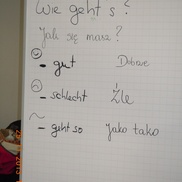 Wie geht's?
Jak się masz?
- gut Dobrze
- schlecht Źle
- geht so Jako tako